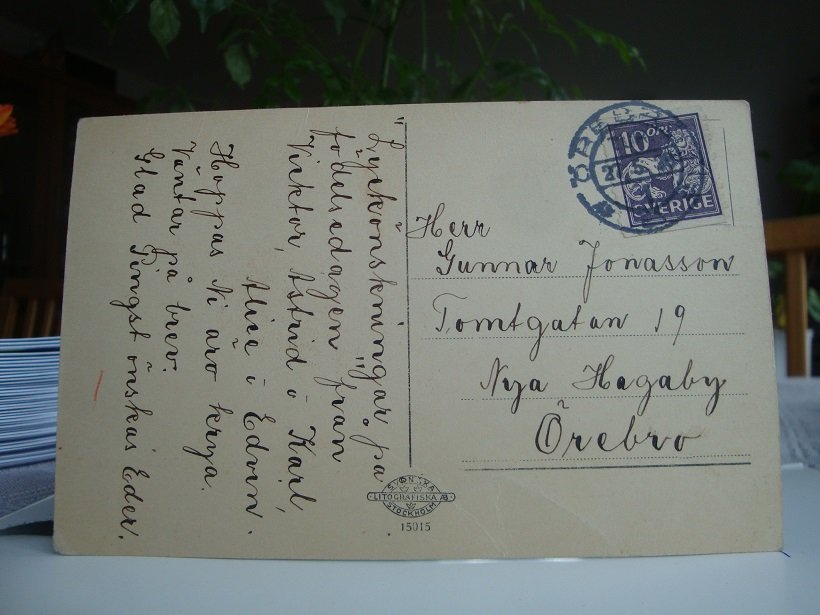 Lyckönskningar på
födelsedagen från
Viktor, Astrid o Karl,
Alice o Edvin.
Hoppas Ni äro krya.
Väntar på brev.
Glad Pingst önskas Eder.
10 ÖRE
SVERIGE
ÖREBRO
27
Herr
Gunnar Jonasson
Tomtgatan 19
Nya Hagaby
Örebro
SVENSKA
LITOGRAFISKA AB
STOCKHOLM
15015